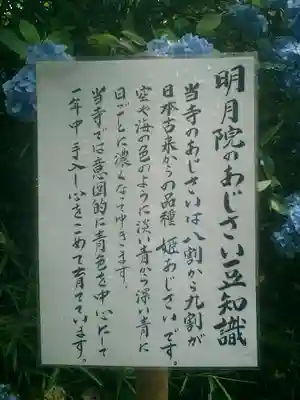 明月院のあじさい豆知識
当寺のあじさいは八割から九割が
日本古来からの品種 姫あじさいです。
空や海の色のように淡い青から深い青に
日ごとに濃くなってゆきます。
当寺では意図的に青色を中心にして
一年中 手入し心をこめて育てています。